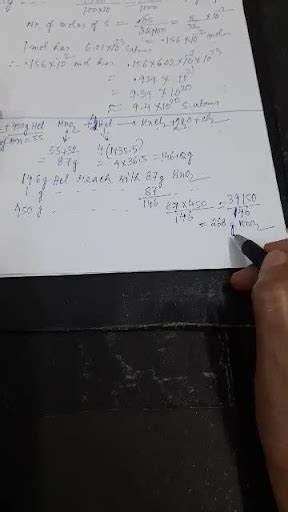 100×10
1000
No. of moles of S = .05/32×10 = 5/32 × 10⁻²
= .156 × 10⁻² moles
1 mol has 6.02×10²³ S atoms
∴ .156×10⁻² mol has .156×602×10⁻²×10²³
= .939 × 10²¹
= 9.39 × 10²⁰
≈ 9.4×10²⁰ S. atoms
450g Hcl MnO₂ + 4Hcl → MnCl₂ + 2H₂O + Cl₂
Mn = 55
= 55+32 4(1+35.5)
= 87g = 4×36.5 = 146.0g
146g Hcl reach with 87g MnO₂
1 g 87/146
450 g 87×450/146 = 39150/146
= 268 g MnO₂